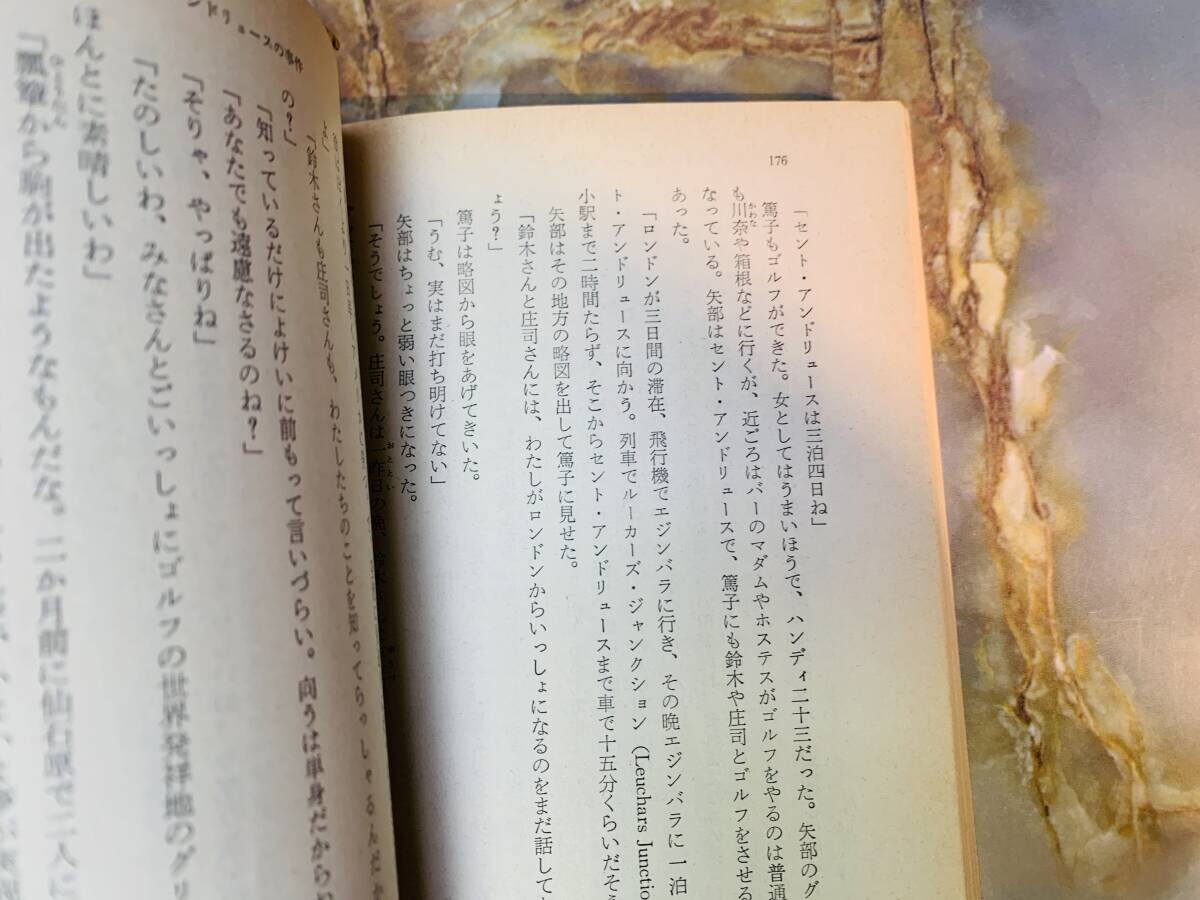 176
「セント・アンドリュースは三泊四日ね」
篤子もゴルフができた。女としてはうまいほうで、ハンディ二十三だった。矢部のグ
も川奈や箱根などに行くが、近ごろはバーのマダムやホステスがゴルフをやるのは普通
かわな
なっている。矢部はセント・アンドリュースで、篤子にも鈴木や庄司とゴルフをさせる
あった。
「ロンドンが三日間の滞在、飛行機でエジンバラに行き、その晩エジンバラに一泊
ト・アンドリュースに向かう。列車でルーカーズ・ジャンクション（Leuchars Junctio
小駅まで二時間たらず、そこからセント・アンドリュースまで車で十五分くらいだそう
矢部はその地方の略図を出して篤子に見せた。
「鈴木さんと庄司さんには、わたしがロンドンからいっしょになるのをまだ話して
ょう？」
篤子は略図から眼をあげてきいた。
「うむ、実はまだ打ち明けてない」
矢部はちょっと弱い眼つきになった。
「そうでしょう。庄司さんは一昨日の晩、
おととい
ンドリュースの事件
「鈴木さんも庄司さんも、わたしたちのことを知ってらっしゃるんだ
の？」
「知っているだけによけいに前もって言いづらい。向うは単身だから
「あなたでも遠慮なさるのね？」
「そりゃ、やっぱりね」
「たのしいわ、みなさんとごいっしょにゴルフの世界発祥地のグリ
ほんとに素晴しいわ」
「瓢簞から駒が出たようなもんだな。二か月前に仙石原で二人に